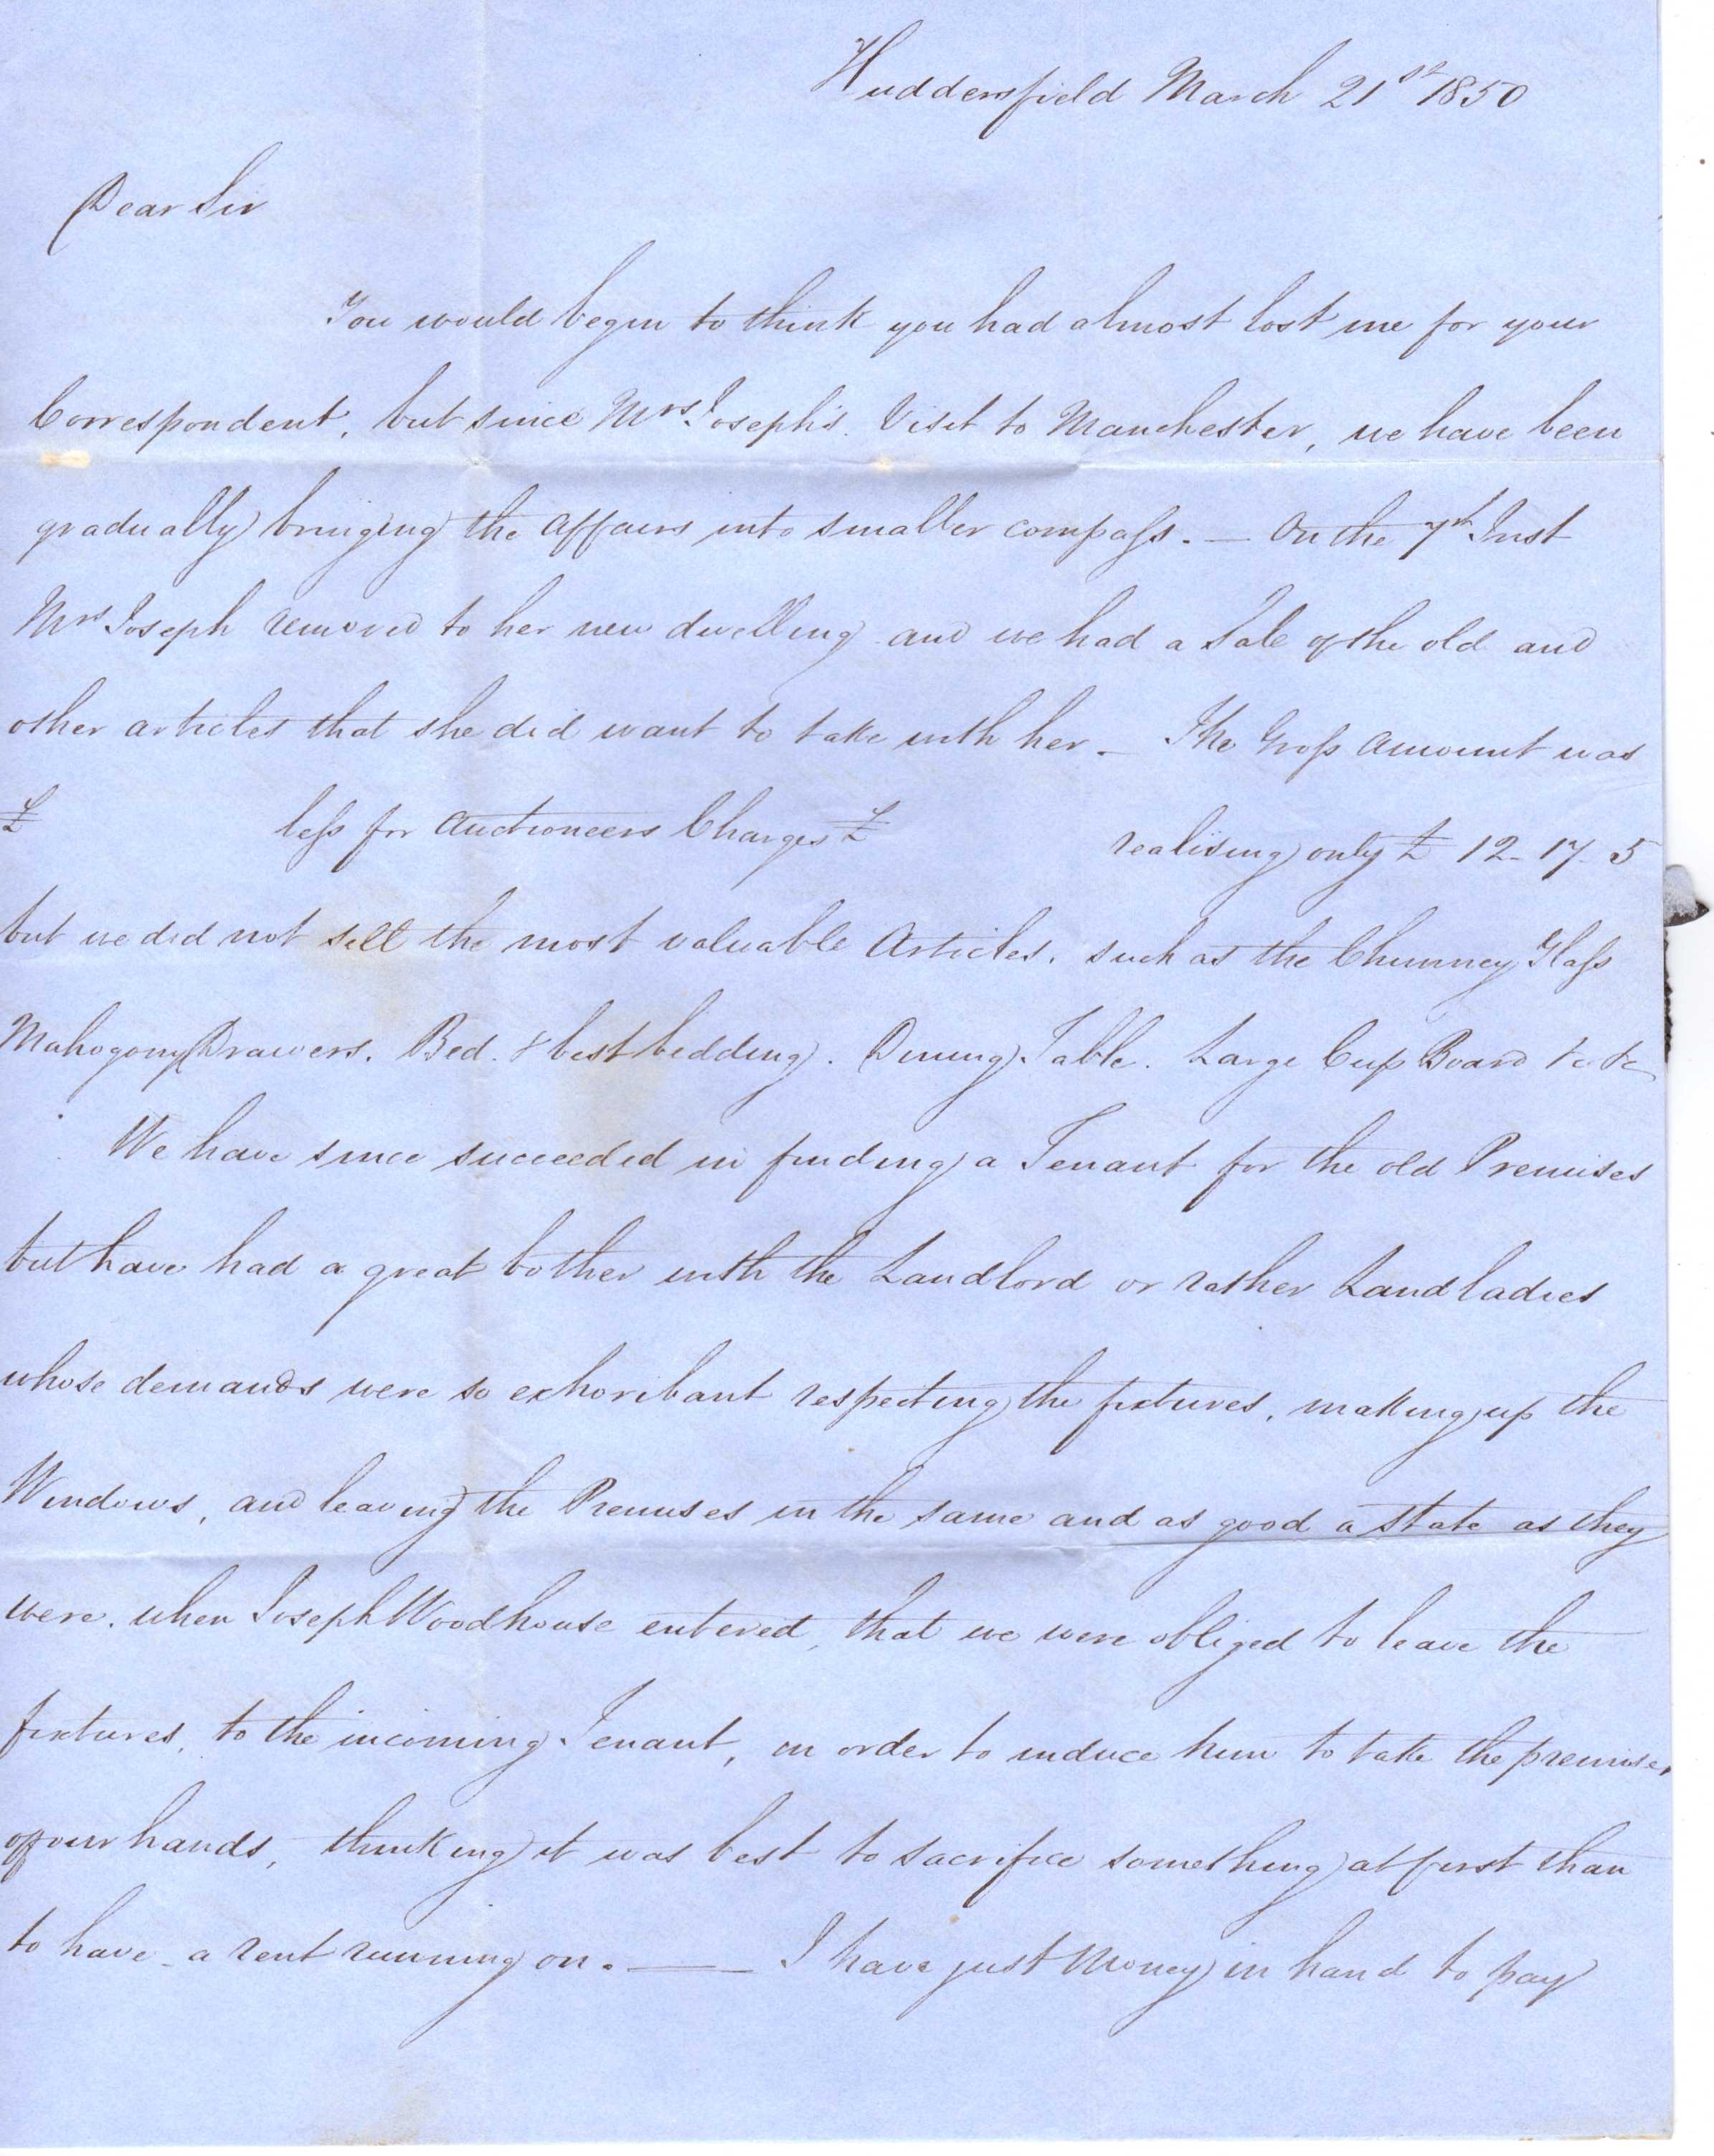 Huddersfield March 21st 1850
Dear Sir
You would begin to think you had almost lost me for your
Correspondent, but since Mrs Joseph's Visit to Manchester, we have been
gradually bringing the affairs into smaller compass. — On the 7th Inst
Mrs Joseph removed to her new dwelling and we had a Sale of the old and
other articles that she did want to take with her — The Gross Amount was
£ less for Auctioneers Charges £ realising only £ 12-17-5
but we did not sell the most valuable Articles, such as the Chimney Glass
Mahogony Drawers. Bed. & best bedding. Dining Table. Large Cup Board &c &c
We have since succeeded in finding a Tenant for the old Premises
but have had a great bother with the Landlord or rather Landladies
whose demands were so exhoribant respecting the fixtures, making up the
Windows, and leaving the Premises in the same and as good a state as they
were, when Joseph Woodhouse entered, that we were obliged to leave the
fixtures, to the incoming Tenant, in order to induce him to take the premises
of our hands, thinking it was best to sacrifice something at first than
to have a rent running on. — I have just Money in hand to pay